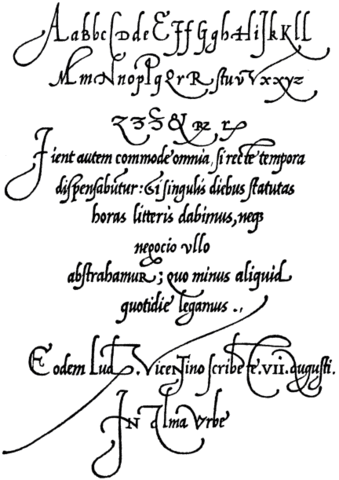 AabbcCDdeEffGgbHiJkKll
MmNnopPqQrRstuvVxxyz
Jient autem commode omnia, si recte tempora
dispensabuntur: Si singulis diebus statutas
horas litteris dabimus, neqȝ
negocio vllo
abstrahamuR; quo minus aliquid
quotidie legamus .,
Eodem Lud. Vicentino scribente. VII. augusti.
IN Alma Vrbe